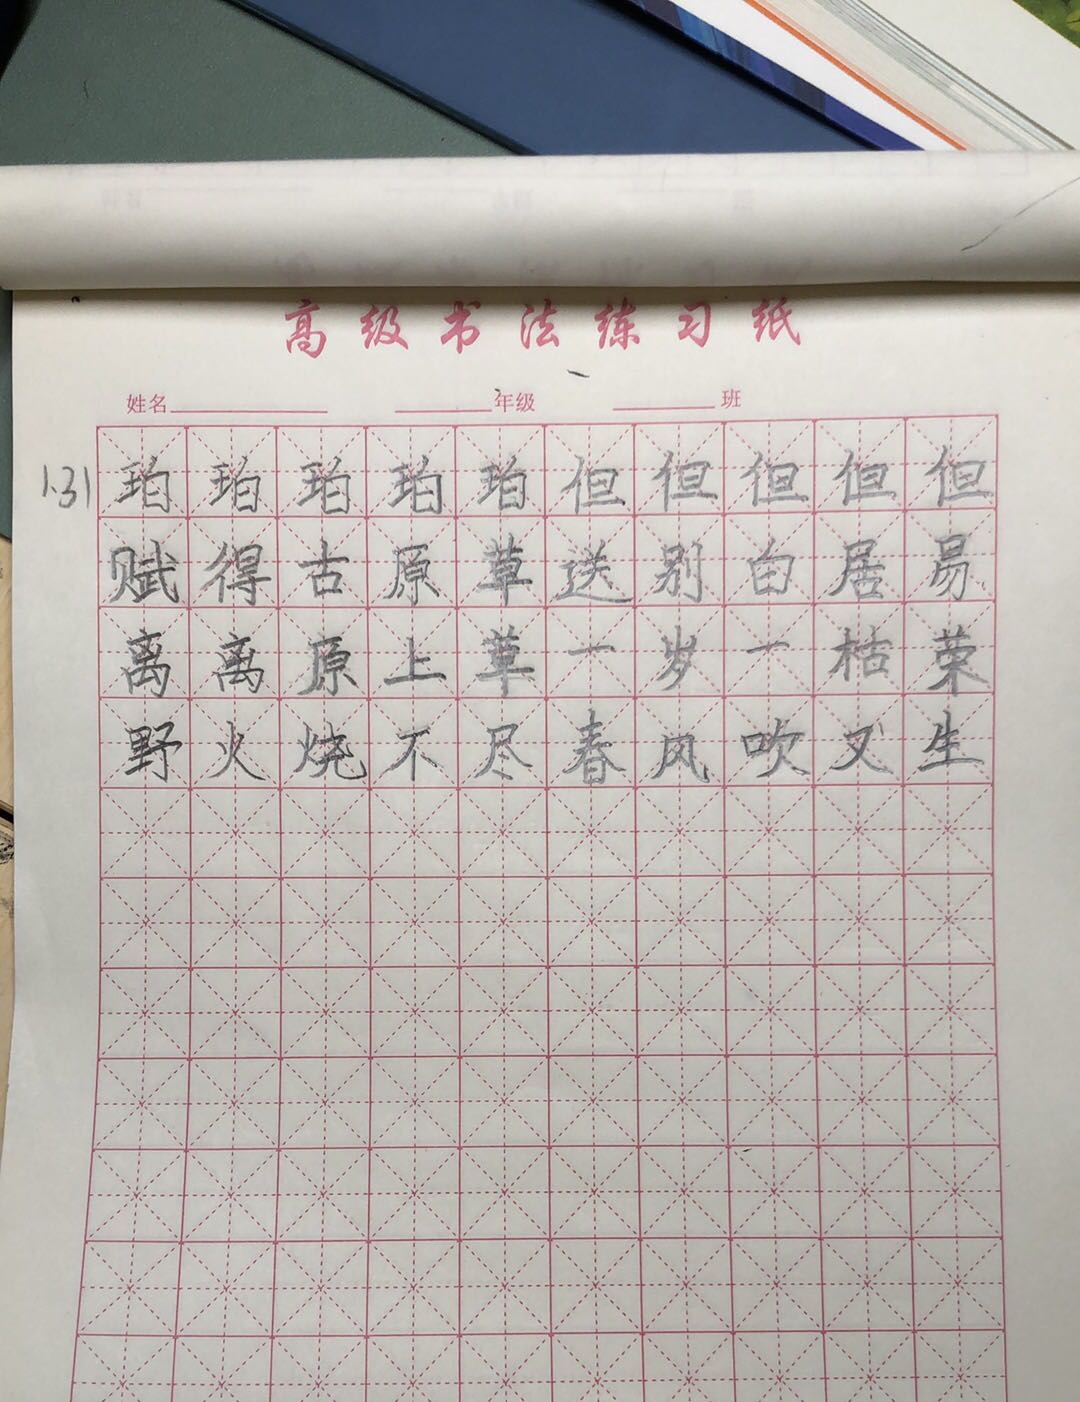 高级书法练习纸
姓名 年级 班
1.31
珀珀珀珀珀但但但但但
赋得古原草送别白居易
离离原上草一岁一枯荣
野火烧不尽春风吹又生